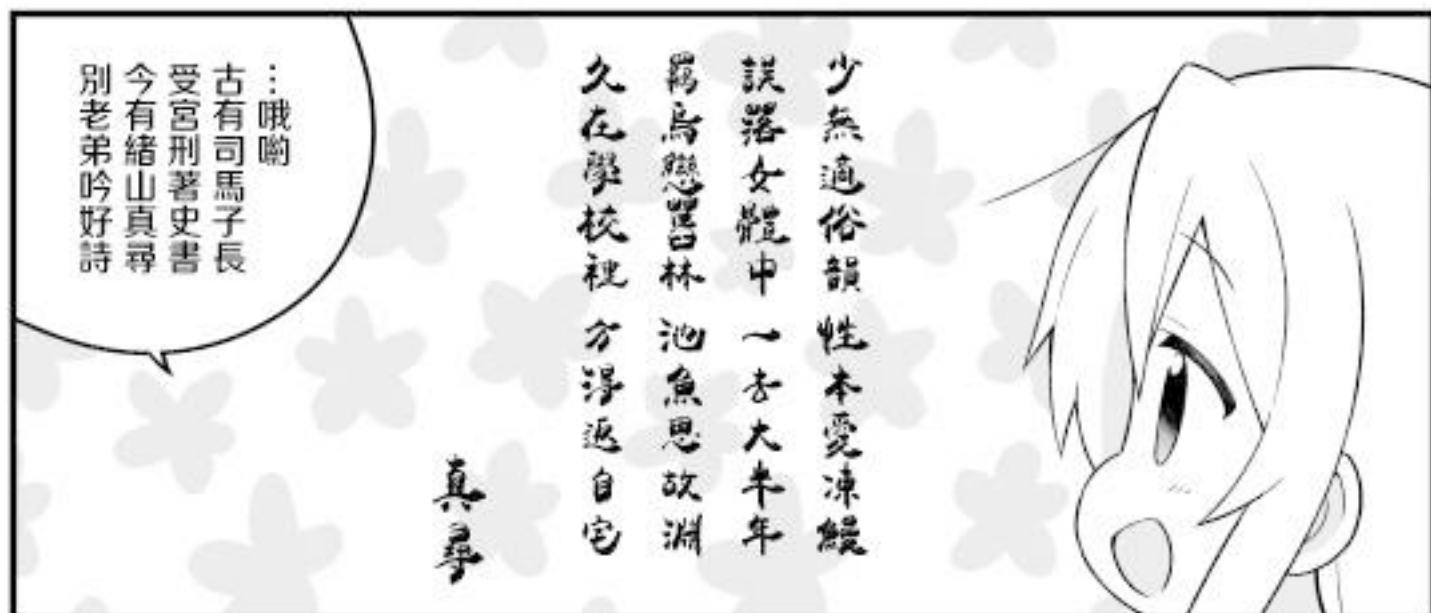 少無適俗韻 性本愛凍鰻
誤落女體中 一去大半年
羈鳥戀舊林 池魚思故淵
久在學校裡 方得返自宅
真尋
…哦喲
古有司馬子長
受宮刑著史書
今有緒山真尋
別老弟吟好詩